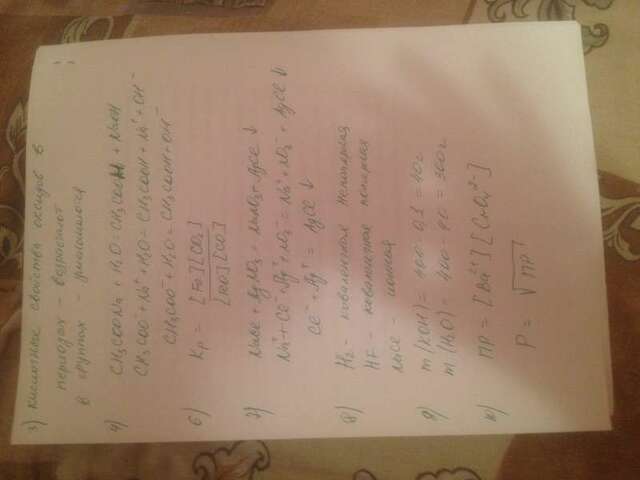 3) кислотные свойства оксидов в
периодах - возрастают
в группах - уменьшаются
4) CH3COONa + H2O = CH3COOH + NaOH
CH3COO⁻ + Na⁺ + H2O = CH3COOH + Na⁺ + OH⁻
CH3COO⁻ + H2O = CH3COOH + OH⁻
6) Kp = [Fe][CO2] / [FeO][CO]
7) NaCl + AgNO3 = NaNO3 + AgCl ↓
Na⁺ + Cl⁻ + Ag⁺ + NO3⁻ = Na⁺ + NO3⁻ + AgCl ↓
Cl⁻ + Ag⁺ = AgCl ↓
8) H2 - ковалентная неполярная
HF - ковалентная полярная
NaCl - ионная
9) m(KOH) = 400 · 0,1 = 40г
m(H2O) = 400 - 40 = 360г
10) ПР = [Ba²⁺][CrO4²⁻]
P = √ПР